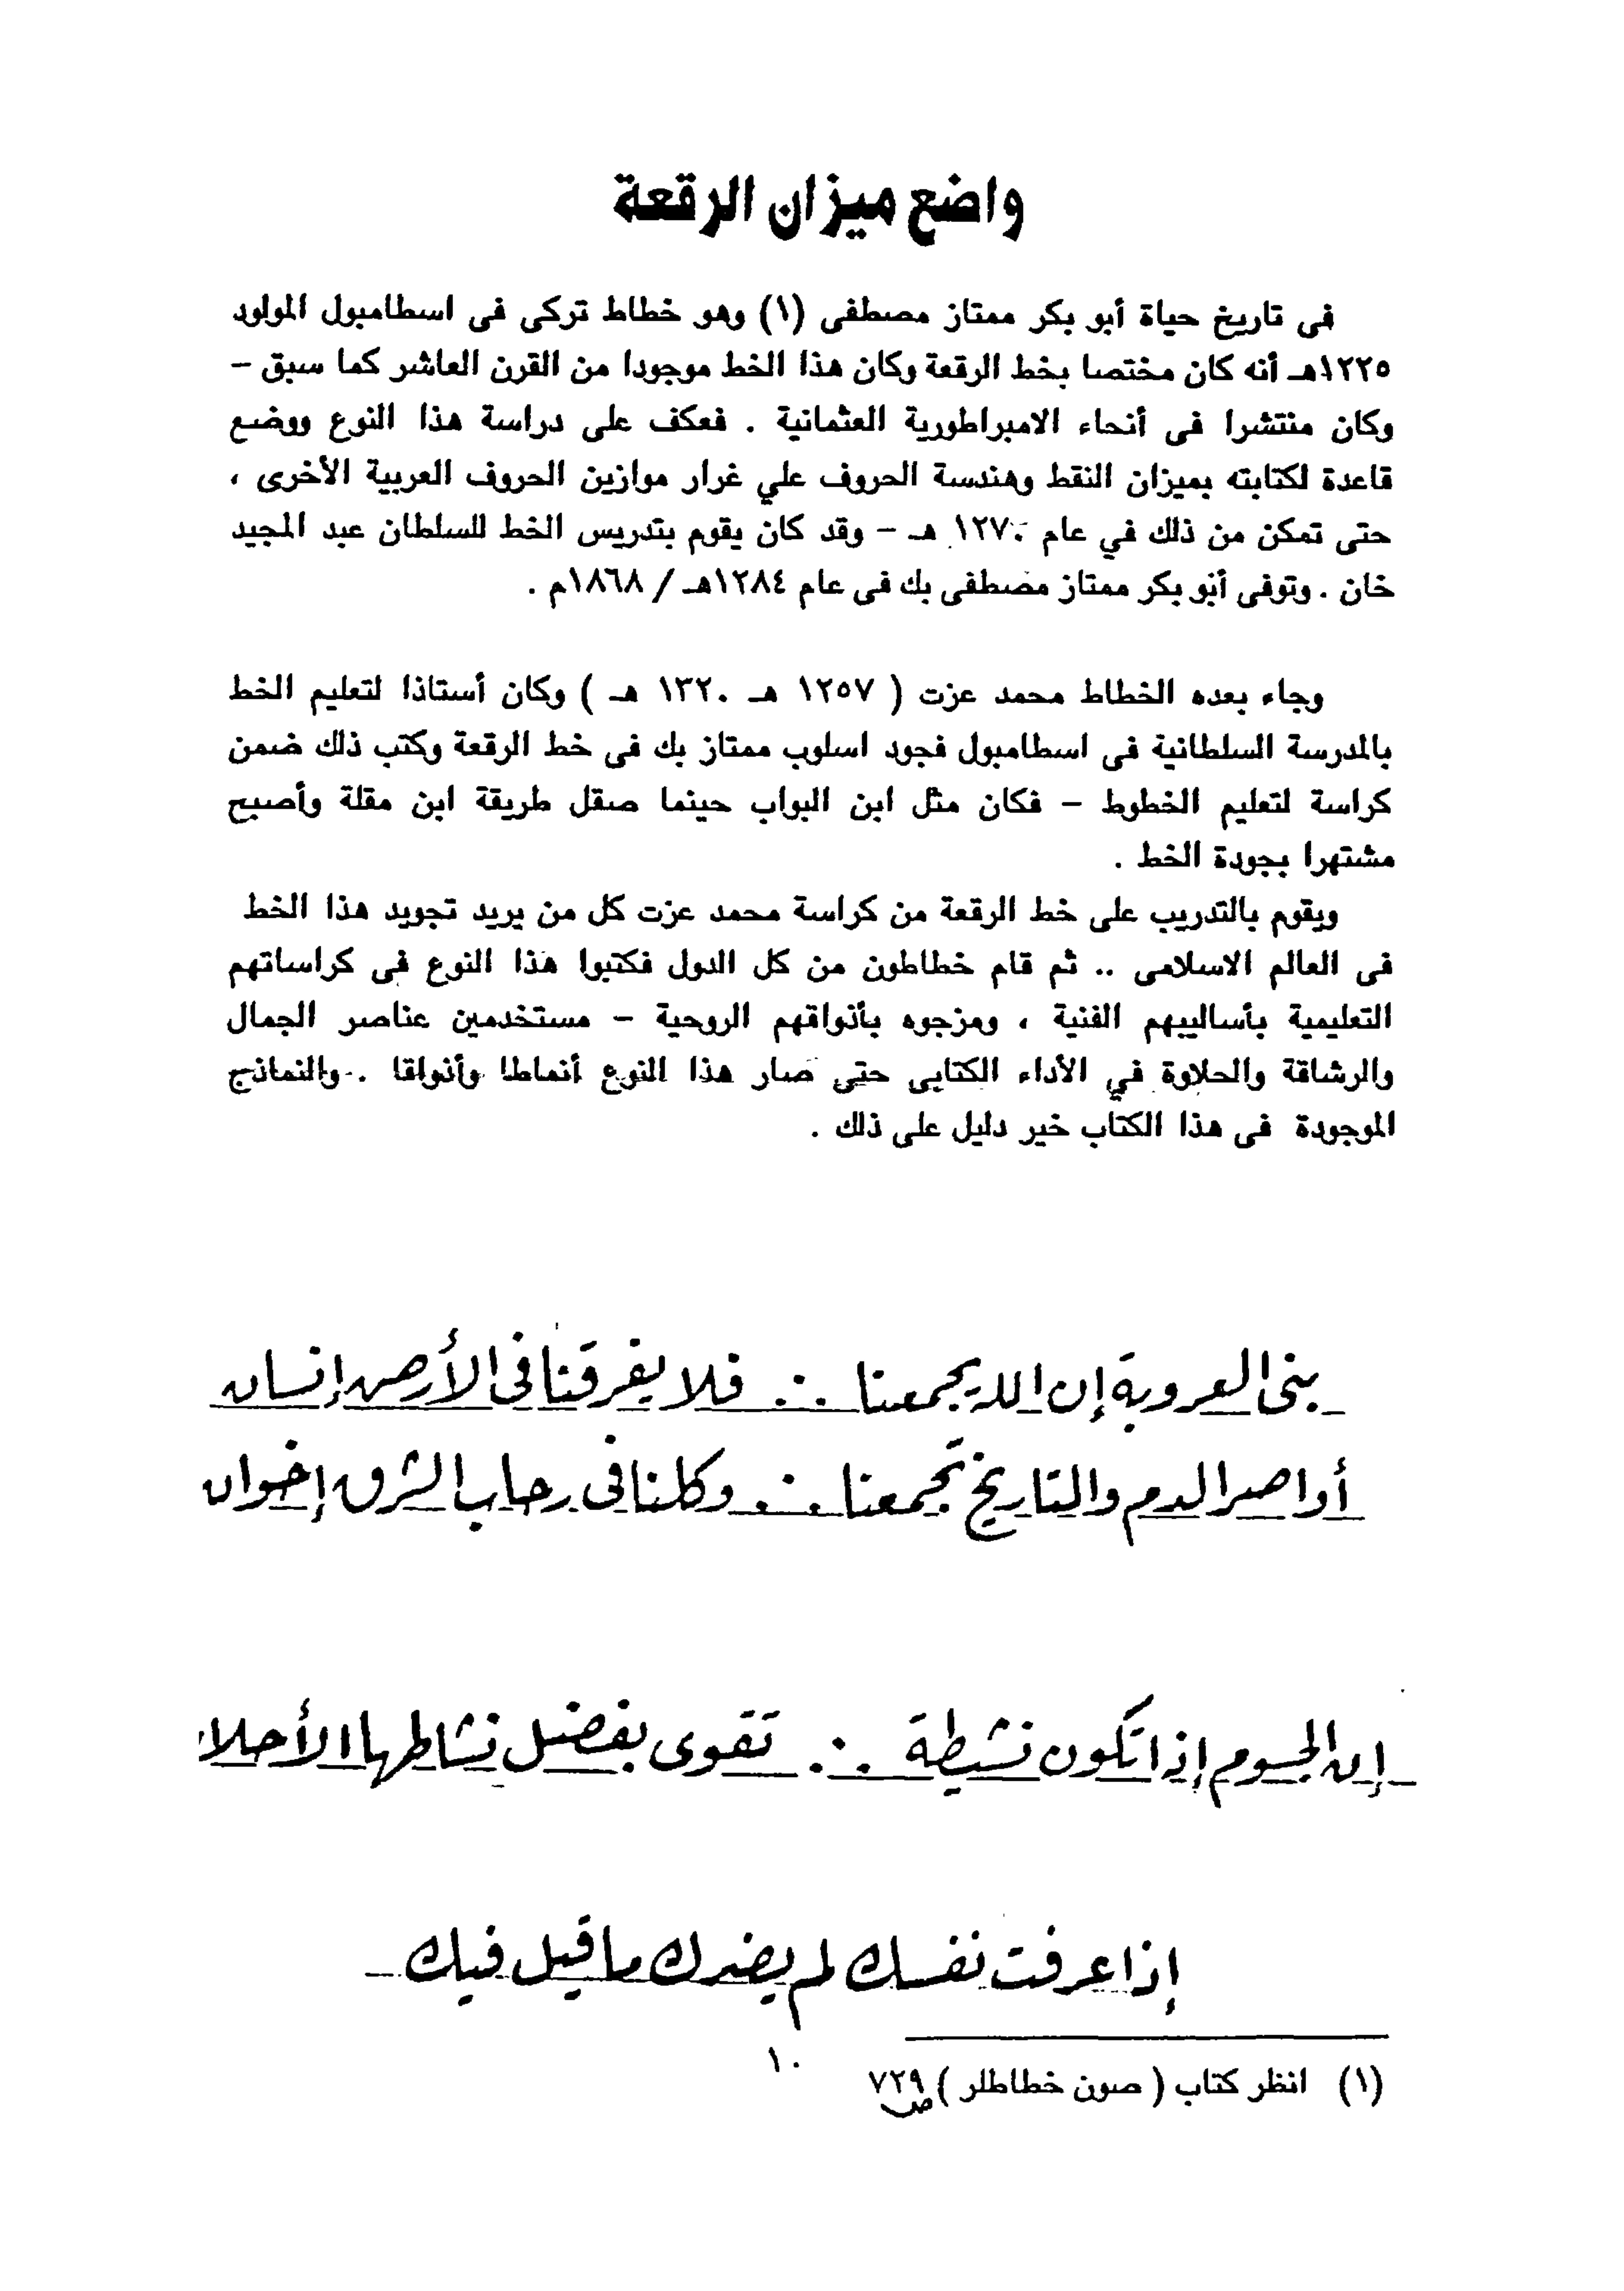 واضع ميزان الرقعة
فى تاريخ حياة أبو بكر ممتاز مصطفى (١) وهو خطاط تركى فى اسطامبول المولود
١٢٢٥هـ أنه كان مختصا بخط الرقعة وكان هذا الخط موجودا من القرن العاشر كما سبق –
وكان منتشرا فى أنحاء الامبراطورية العثمانية . فعكف على دراسة هذا النوع ووضع
قاعدة لكتابته بميزان النقط وهندسة الحروف علي غرار موازين الحروف العربية الأخرى ،
حتى تمكن من ذلك في عام ١٢٧٠ هـ – وقد كان يقوم بتدريس الخط للسلطان عبد المجيد
خان . وتوفى أبو بكر ممتاز مصطفى بك فى عام ١٢٨٤هـ / ١٨٦٨م .
وجاء بعده الخطاط محمد عزت ( ١٢٥٧ هـ ١٣٢٠ هـ ) وكان أستاذا لتعليم الخط
بالمدرسة السلطانية فى اسطامبول فجود اسلوب ممتاز بك فى خط الرقعة وكتب ذلك ضمن
كراسة لتعليم الخطوط – فكان مثل ابن البواب حينما صقل طريقة ابن مقلة وأصبح
مشتهرا بجودة الخط .
ويقوم بالتدريب على خط الرقعة من كراسة محمد عزت كل من يريد تجويد هذا الخط
فى العالم الاسلامى .. ثم قام خطاطون من كل الدول فكتبوا هذا النوع فى كراساتهم
التعليمية بأساليبهم الفنية ، ومزجوه بأذواقهم الروحية – مستخدمين عناصر الجمال
والرشاقة والحلاوة في الأداء الكتابى حتى صار هذا النوع أنماطا وأذواقا . والنماذج
الموجودة فى هذا الكتاب خير دليل على ذلك .
بنى العروبة إن الله يجمعنا ∴ فلا يفرقنا فى الأرض إنسان
أواصر الدم والتاريخ تجمعنا ∴ وكلنا فى رحاب الشرق إخوان
إن الجسوم إذا تكون نشيطة ∴ تقوى بفضل نشاطها الأحلا
إذا عرفت نفسك لم يضرك ما قيل فيك
(١) انظر كتاب ( صون خطاطلر ) ص ٧٢٩
١٠